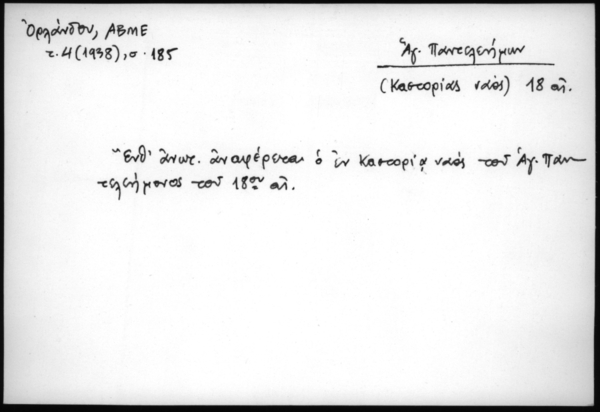 Ὀρλάνδου, ΑΒΜΕ
τ. 4 (1938), σ. 185
Ἁγ. Παντελεήμων
(Καστορίας ναός) 18 αἰ.
Ἔνθ' ἀνωτ. ἀναφέρεται ὁ ἐν Καστορίᾳ ναός τοῦ Ἁγ. Παν-
τελεήμονος τοῦ 18ου αἰ.